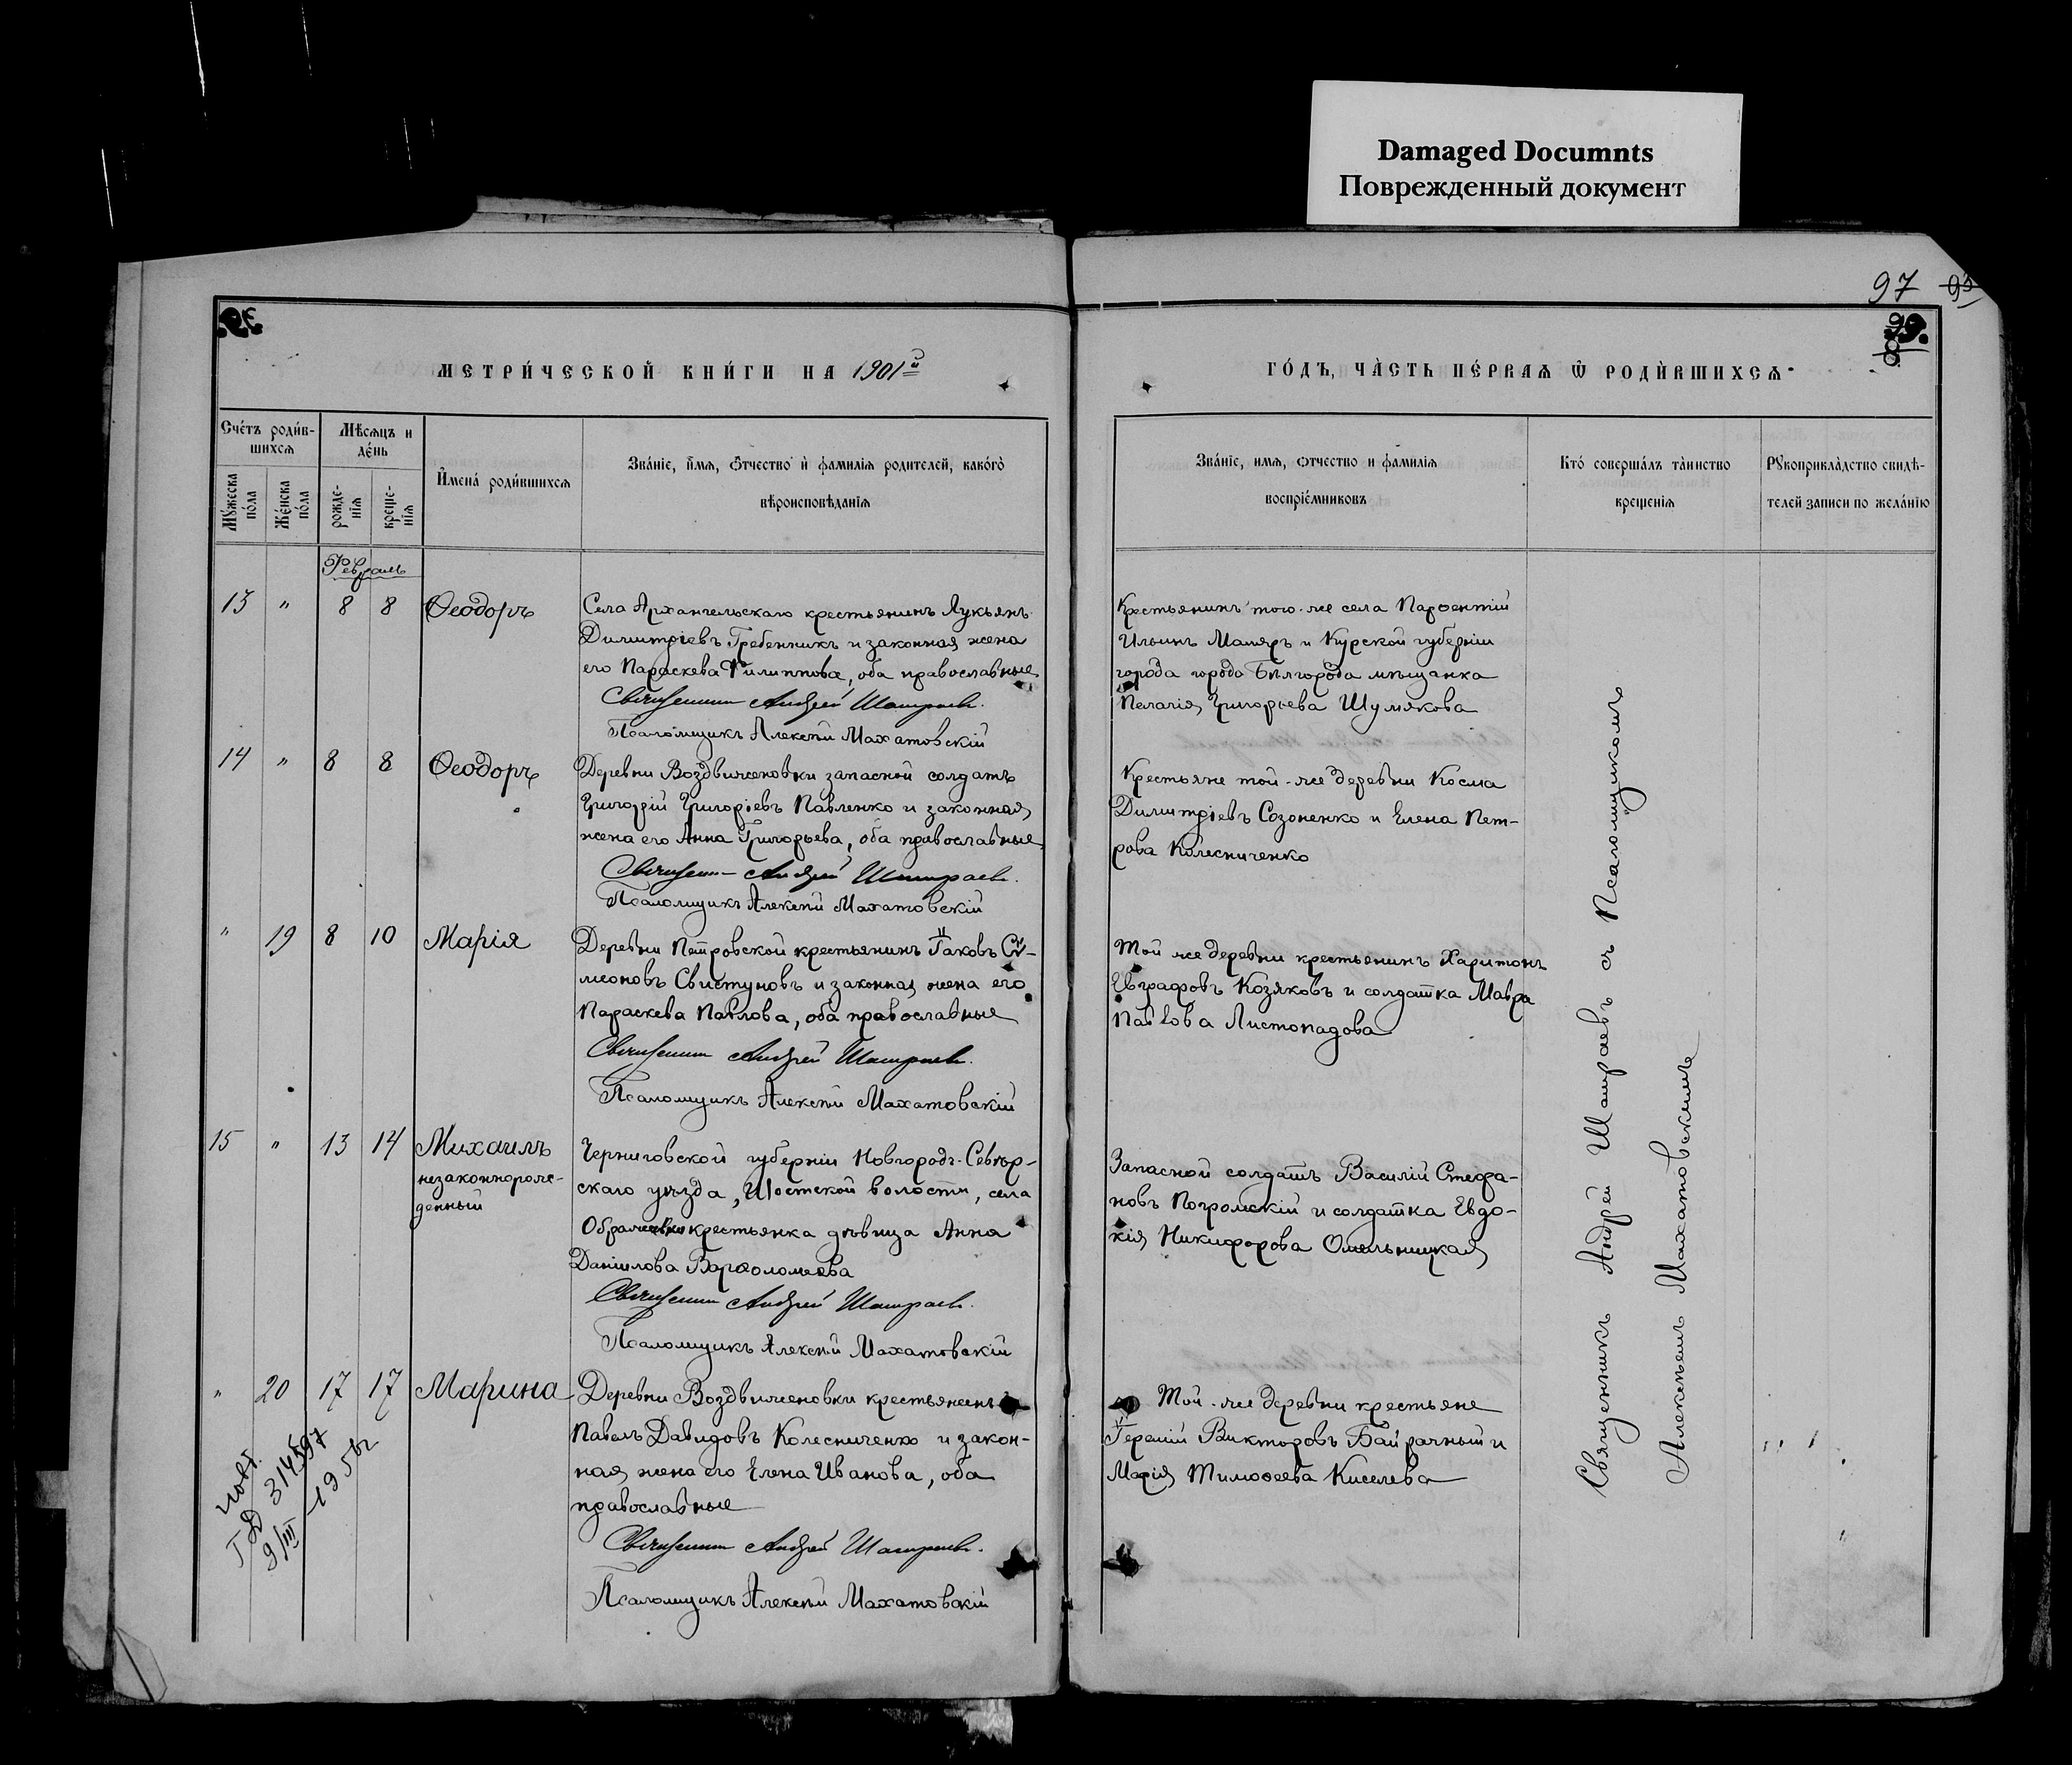 Damaged Documnts
Поврежденный документ
97 93
МЕТРИ́ЧЕСКОЙ КНИ́ГИ НА 1901й
ГО́ДЪ, ЧА̀СТЬ ПЕ́РВАѦ Ѿ РОДИ́ВШИХСѦ
Сче́тъ роди́в-
шихсѧ
Мѣсѧцъ и
де́нь
Мꙋ́жеска
по́ла
Же́нска
по́ла
рожде-
нїѧ
креще-
нїѧ
И҆мена̀ роди́вшихсѧ
Зва́нїе, и҆́мѧ, ѻ҆́тчество и҆ фамилїѧ родителей, како́гѡ
вѣроисповѣ́данїѧ
Зва́нїе, имѧ, ѻтчество и фамилїѧ
воспрїе́мниковъ
Кто̀ соверша́лъ та̀инство
крещенїѧ
Рꙋкоприкла̀дство свидѣ-
телей записи по жела́нїю
Февраль
13 " 8 8 Ѳеодоръ
Села Архангельскаго крестьянинъ Лукьянъ
Димитріевъ Гребенникъ и законная жена
его Параскева Филиппова, оба православные
Священникъ Андрей Шатраевъ.
Псаломщикъ Алексѣй Махатовскій
Крестьянинъ того-же села Парѳентій
Ильинъ Маляръ и Курской губерніи
города города Бѣлгорода мѣщанка
Пелагія Григорьева Шумякова
14 " 8 8 Ѳеодоръ
Деревни Воздвиженовки запасной солдатъ
Григорій Григоріевъ Павленко и законная
жена его Анна Григорьева, оба православные
Священникъ Андрей Шатраевъ.
Псаломщикъ Алексѣй Махатовскій
Крестьяне той-же деревни Косма
Димитріевъ Созоненко и Елена Пет-
рова Колесниченко
" 19 8 10 Марія
Деревни Петровской крестьянинъ Іаковъ Сѵ-
меоновъ Свистуновъ и законная жена его
Параскева Павлова, оба православные
Священникъ Андрей Шатраевъ.
Псаломщикъ Алексѣй Махатовскій
Той же деревни крестьянинъ Харитонъ
Евграфовъ Козяковъ и солдатка Мавра
Павлова Листопадова
15 " 13 14 Михаилъ
незаконнорож-
денный
Черниговской губерніи Новгородъ-Сѣвер-
скаго уѣзда, Шостской волости, села
Ображеевки крестьянка дѣвица Анна
Даніилова Варѳоломеева
Священникъ Андрей Шатраевъ.
Псаломщикъ Алексѣй Махатовскій
Запасной солдатъ Василій Стефа-
новъ Погромскій и солдатка Евдо-
кія Никифорова Омельницкая
" 20 17 17 Марина
Деревни Воздвиженовки крестьянинъ
Павелъ Давидовъ Колесниченко и закон-
ная жена его Елена Иванова, оба
православные
Священникъ Андрей Шатраевъ.
Псаломщикъ Алексѣй Махатовскій
Той-же деревни крестьяне
Іеремій Викторовъ Байрачный и
Марія Тимоѳеева Киселева
9/III -1956г
Священникъ Андрей Шатраевъ съ Псаломщикомъ
Алексѣемъ Махатовскимъ